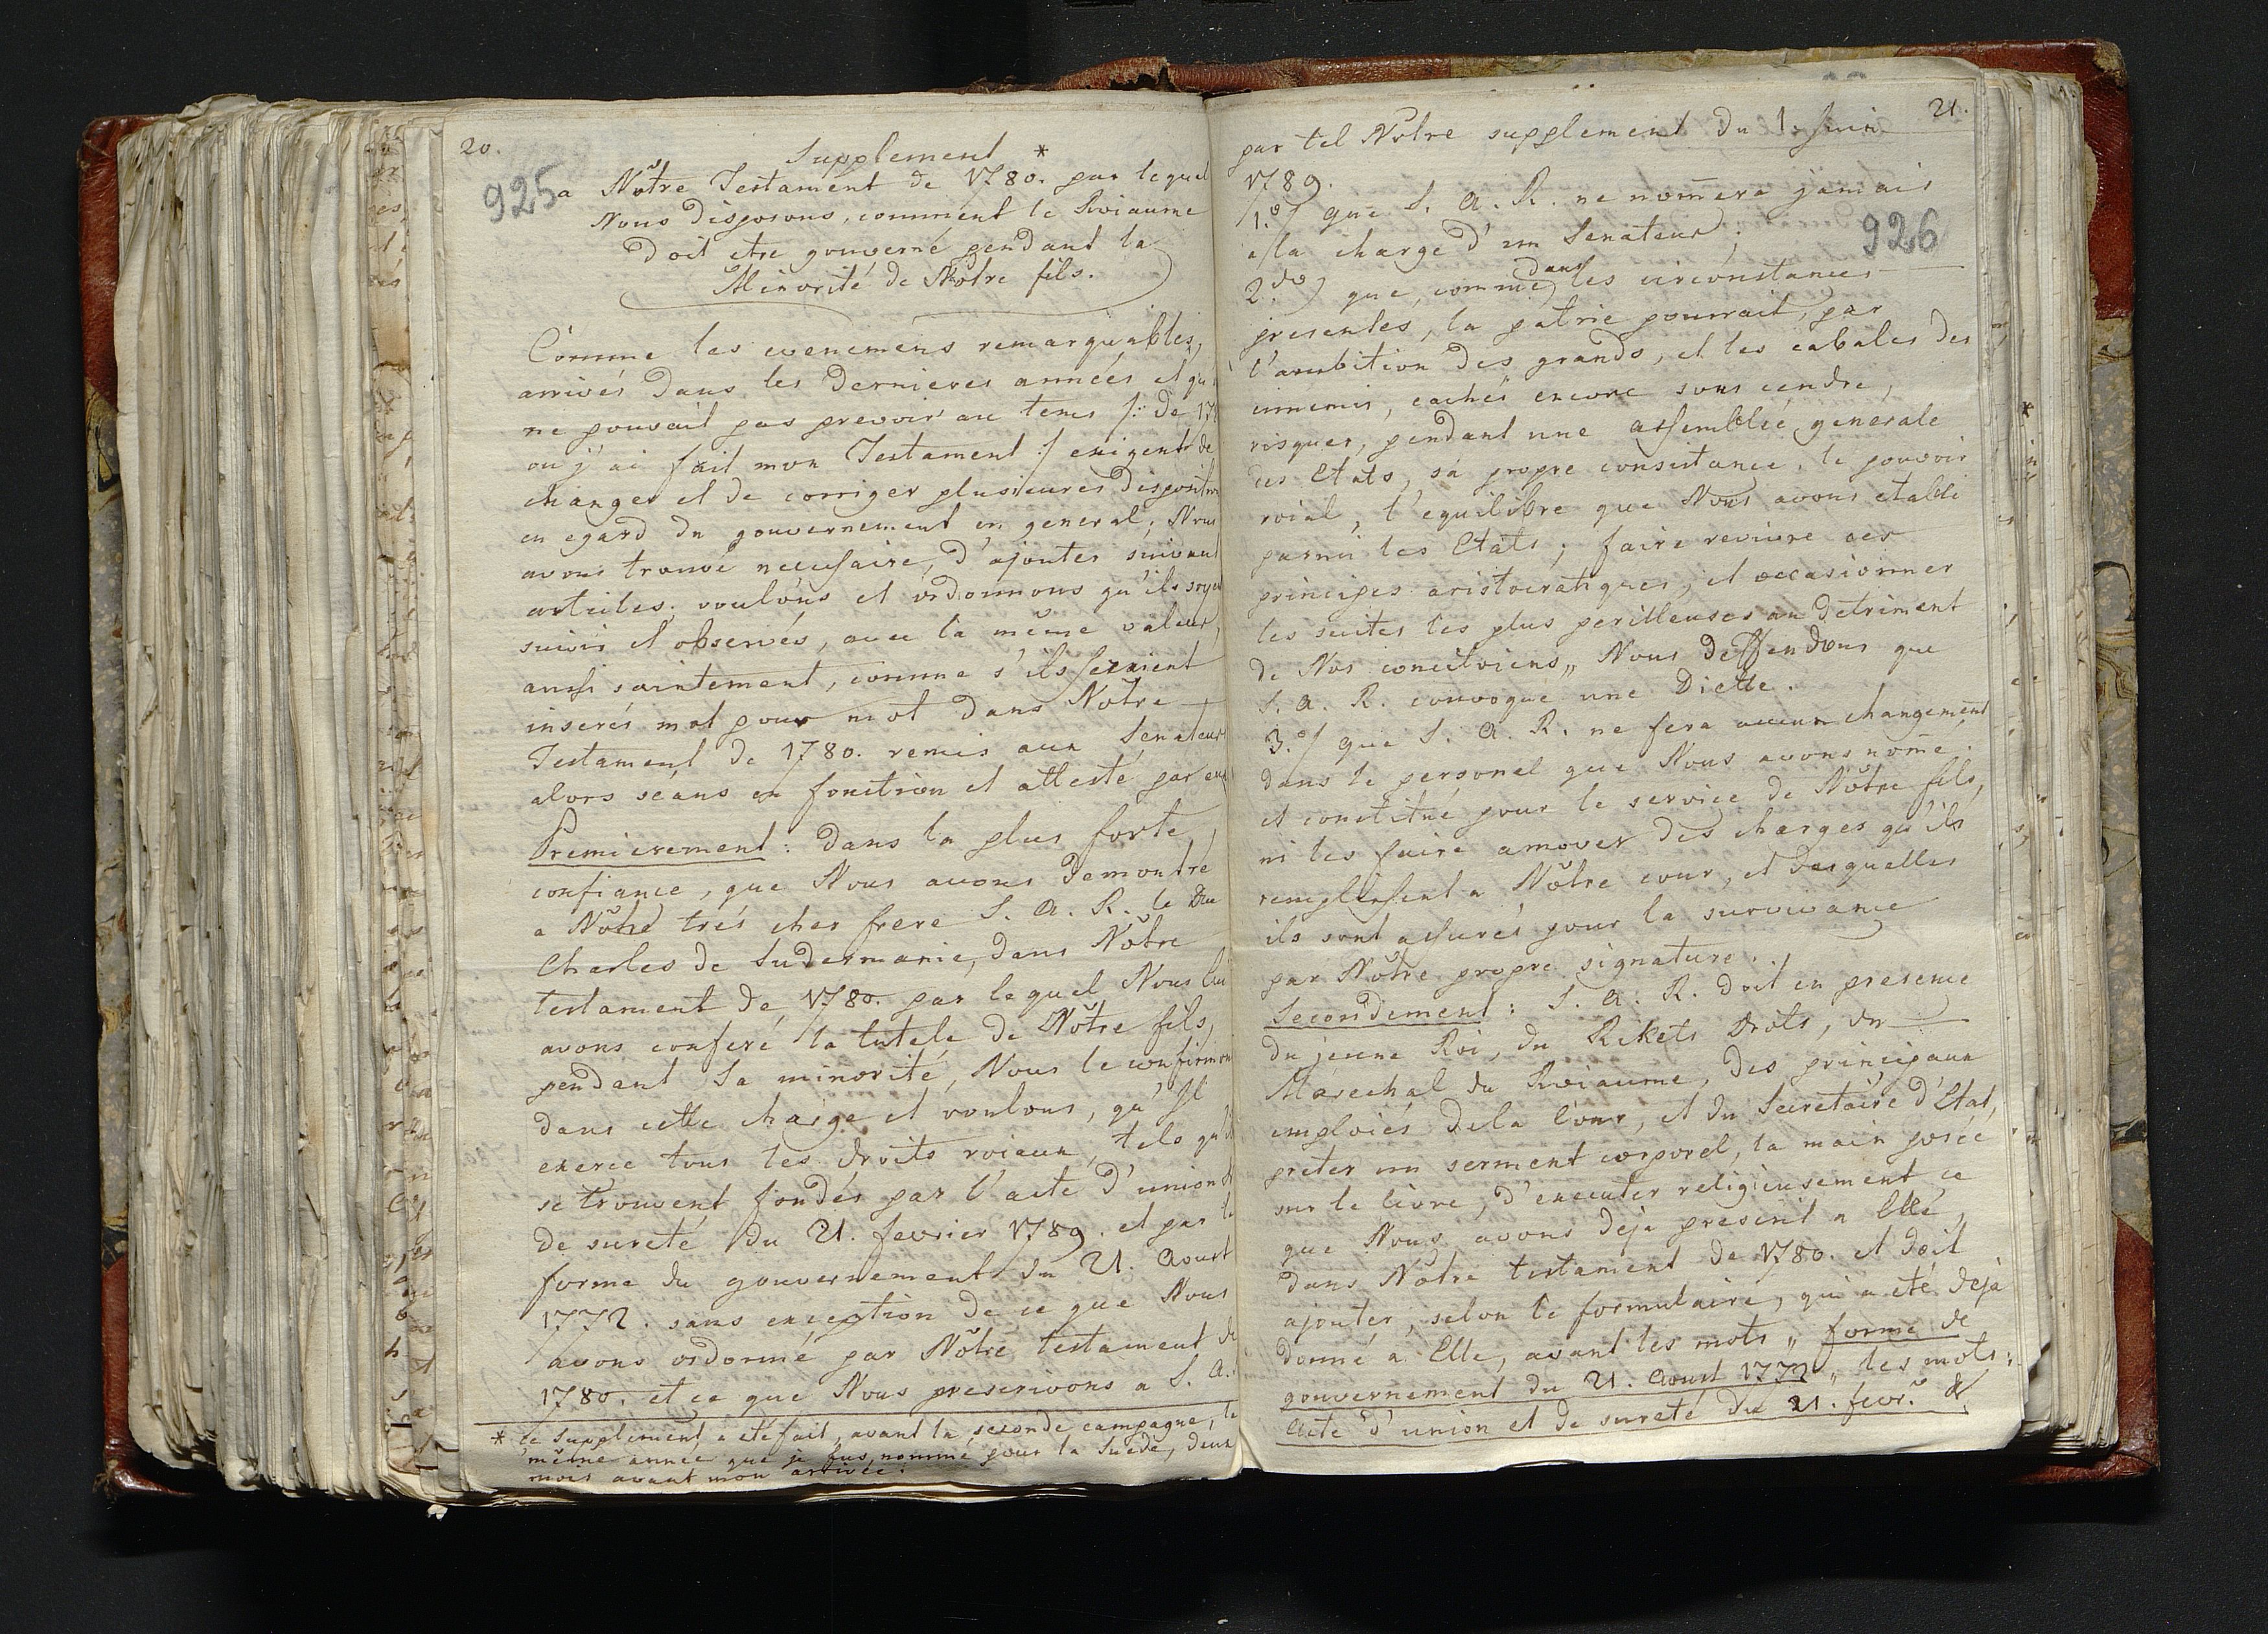 20.
Supplement *
925
a Nôtre Testament de 1780. par lequel
Nous disposons, comment le Roiaume
doit etre gouverné pendant la
Minorité de Nôtre fils.
Comme les evenemens remarquables,
arrivés dans les dernieres années et qu
ne pouvait pas prevoir au tems /: de 178
ou j'ai fait mon Testament :/ exigent de
changer et de corriger plusieures disposition
en egard du gouvernement en general; Nous
avons trouvé necessaire, d'ajouter suivant
articles; voulons et ordonnons qu'ils soyent
suivis et observés, avec la même valeur,
aussi saintement, comme s'ils seraient
inserés mot pour mot dans Nôtre
Testament de 1780. remis aux Senateurs
alors seans en fonction et attesté par eux
Premierement: dans la plus forte
confiance, que Nous avons demontré
a Nôtre trés cher frere S. A. R. le Duc
Charles de Sudermanie, dans Nôtre
testament de 1780. par lequel Nous lui
avons conferé la tutele de Nôtre fils,
pendant sa minorité, Nous le confirmon
dans cette charge et voulons, qu'Il
exerce tous les droits roiaux, tels qu'il
se trouvent fondés par l'acte d'union &
de sureté du 21. fevrier 1789. et par la
forme du gouvernement du 21. Aoust
1772. sans exception de ce que Nous
avons ordonné par Nôtre testament de
1780. et ce que Nous prescrivons a S. A.
* ce supplement a eté fait, avant la seconde campagne, la
même année que je fus nommé pour la Suede, deux
mois avant mon arrivée.
21.
par tel Nôtre supplement du 1. Juin
1789.
1.º/ que S. A. R. ne nom̄era jamais
a la charge d'un Senateur;
926
2.do) que, comme dans les circonstances
presentes, la patrie pourrait, par
l'ambition des grands, et les cabales des
ennemis, cachés encore sous cendre,
risquer, pendant une assemblée generale
des Etats, sa propre consistance, le pouvoir
roial, l'equilibre que Nous avons etabli
parmi les Etats; faire revivre ces
principes aristocratiques, et occasionner
les suites les plus perilleuses au detriment
de Nos concitoiens,, Nous deffendons que
S. A. R. convoque une Diette.
3.º/ que S. A. R. ne fera aucun changement
dans le personel que Nous avons nom̄é
et constitué pour le service de Nôtre fils,
ni les faire amover des charges qu'ils
remplissent a Nôtre cour, et desquelles
ils sont assurés pour la survivance
par Nôtre propre signature.
Secondement: S. A. R. doit en presence
du jeune Roi, du Rikets Drots, du
Marechal du Roiaume, des principaux
emploiés de la Cour, et du Secretaire d'Etat,
preter un serment corporel, la main posée
sur le livre, d'executer religieusement ce
que Nous avons deja prescrit a Elle,
dans Nôtre testament de 1780. et doit
ajouter, selon le formulaire, qui a eté deja
donné a Elle, avant les mots „ forme de
gouvernement du 21. Aoust 1772 „ les mots:
Acte d'union et de sureté du 21. fevr. &